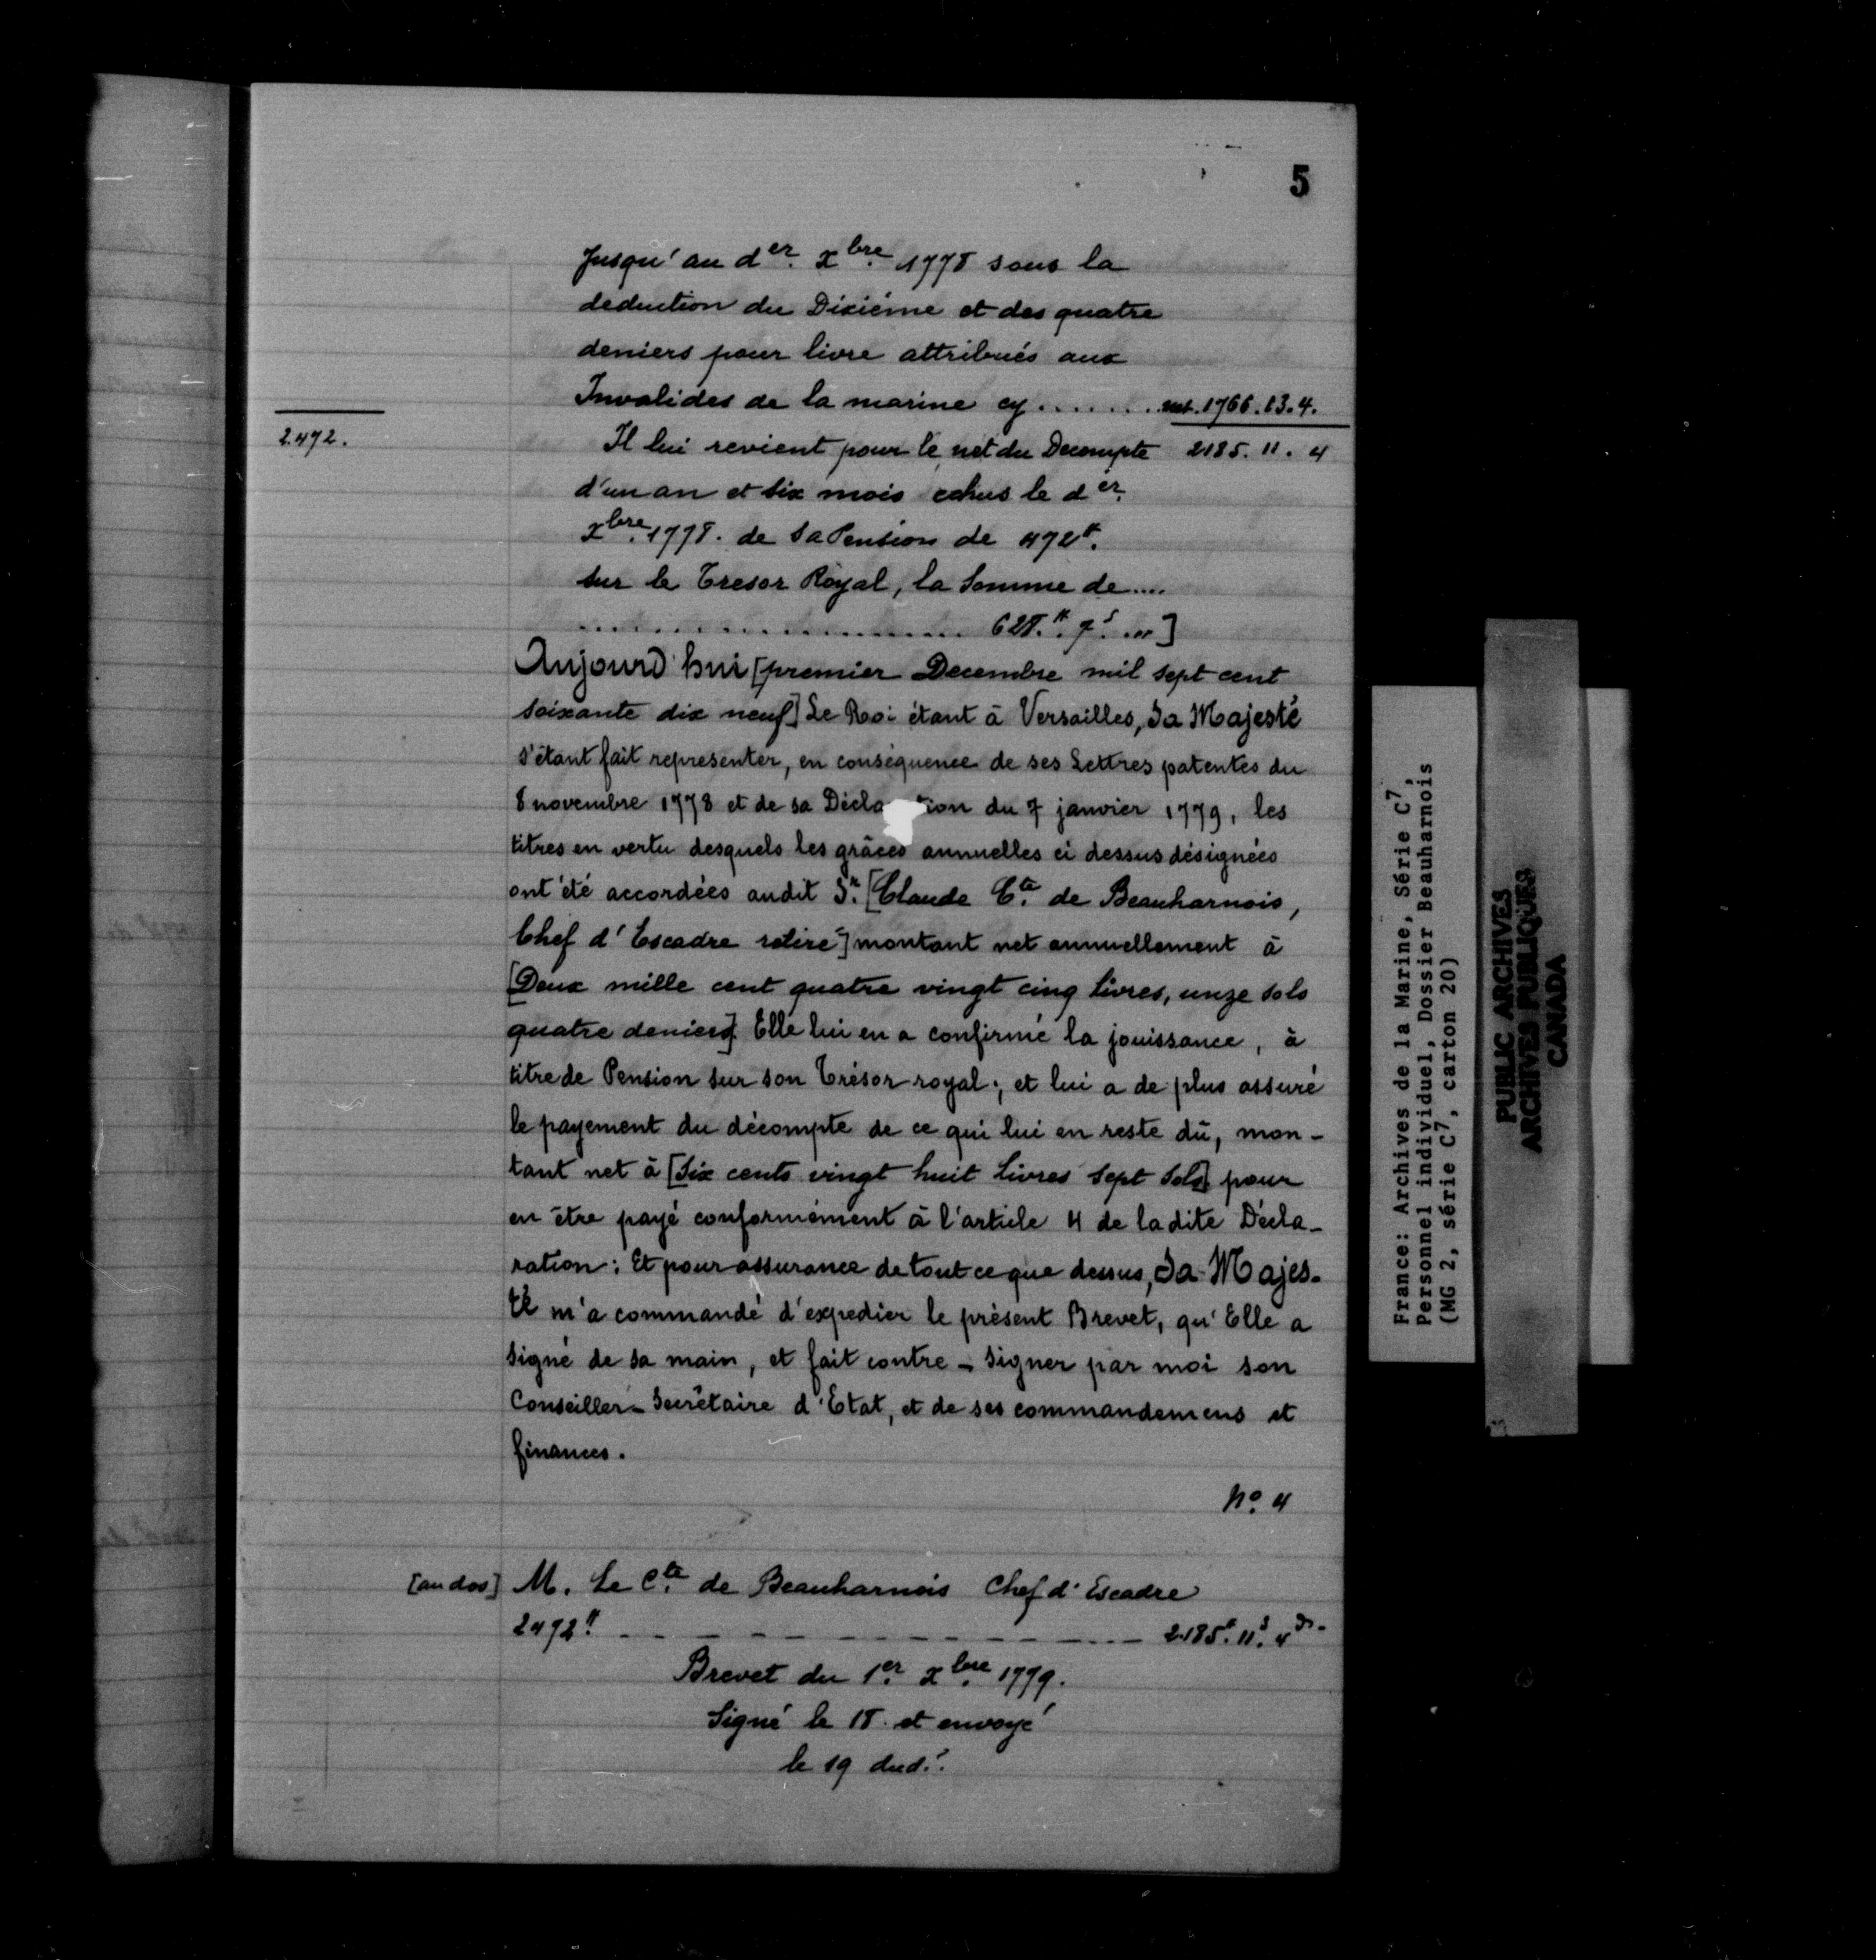 5
Jusqu'au der. xbre. 1778 sous la
deduction du Dixiéme et des quatre
deniers pour livre attribués aux
Invalides de la marine cy ....... net. 1766.13.4.
2472.
Il lui revient pour le net du Decompte 2185. 11. 4
d'un an et six mois echus le der.
xbre. 1778. de Sa Pension de 472#.
sur le Tresor Royal, la Somme de ....
........................ 628.# 7s. ...]
Aujourd'hui [premier Decembre mil sept cent
soixante dix neuf] Le Roi étant à Versailles, Sa Majesté
s'étant fait représenter, en conséquence de ses Lettres patentes du
8 novembre 1778 et de sa Décla tion du 7 janvier 1779, les
titres en vertu desquels les grâces annuelles ci dessus désignées
ont été accordées audit Sr. [Claude Cte. de Beauharnois,
Chef d'Escadre retiré] montant net annuellement à
[Deux mille cent quatre vingt cinq livres, unze sols
quatre deniers]. Elle lui en a confirmé la jouissance, à
titre de Pension sur son Trésor royal; et lui a de plus assuré
le payement du décompte de ce qui lui en reste dû, mon-
tant net à [Six cents vingt huit livres sept sols] pour
en être payé conformément à l'article 4 de la dite Décla-
ration: Et pour assurance de tout ce que dessus, Sa Majes-
té m'a commandé d'expedier le présent Brevet, qu'Elle a
signé de sa main, et fait contre-signer par moi son
Conseiller-Secrétaire d'Etat, et de ses commandemens et
finances.
No. 4
[au dos] M. Le Cte. de Beauharnois Chef d'Escadre
2472# - - - - - - - - - - - - 2185.# 11.s 4 drs.
Brevet du 1er. xbre. 1779.
Signé le 18. et envoyé
le 19 dud.t.
France: Archives de la Marine, Série C7,
Personnel individuel, Dossier Beauharnois
(MG 2, série C7, carton 20)
PUBLIC ARCHIVES
ARCHIVES PUBLIQUES
CANADA